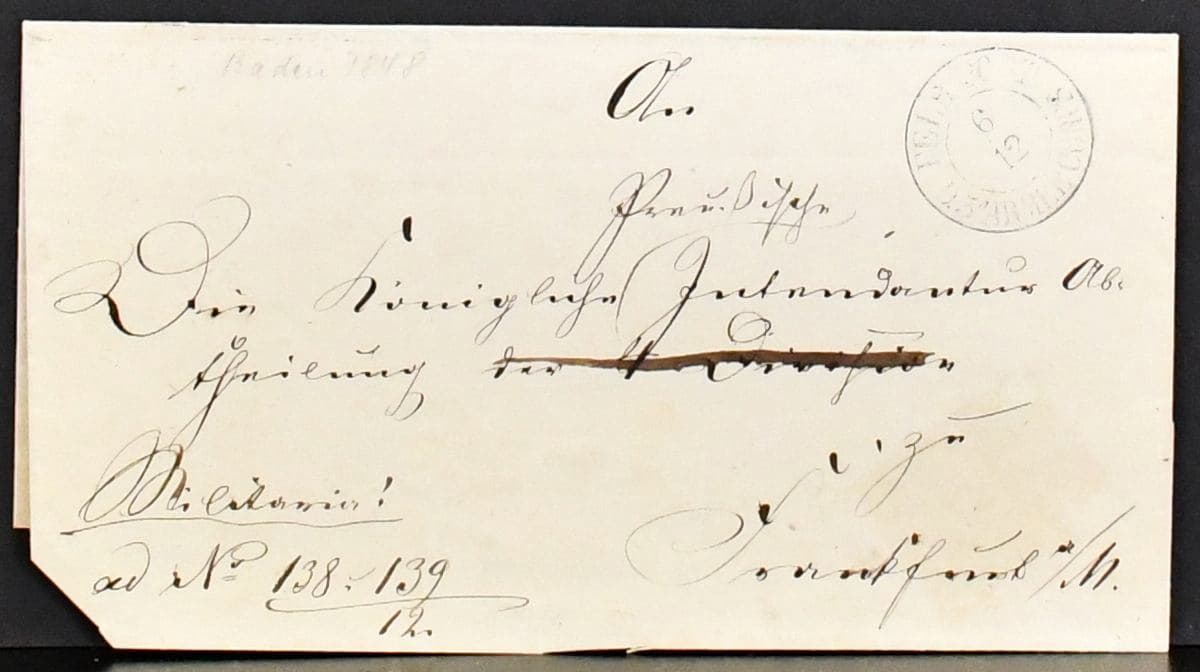 Baden 1848
An
Preußische
Die Königliche Intendantur Ab-
theilung der Division
zu
Frankfurt a/M.
Militaria!
ad No 138 u. 139
12.
6
12